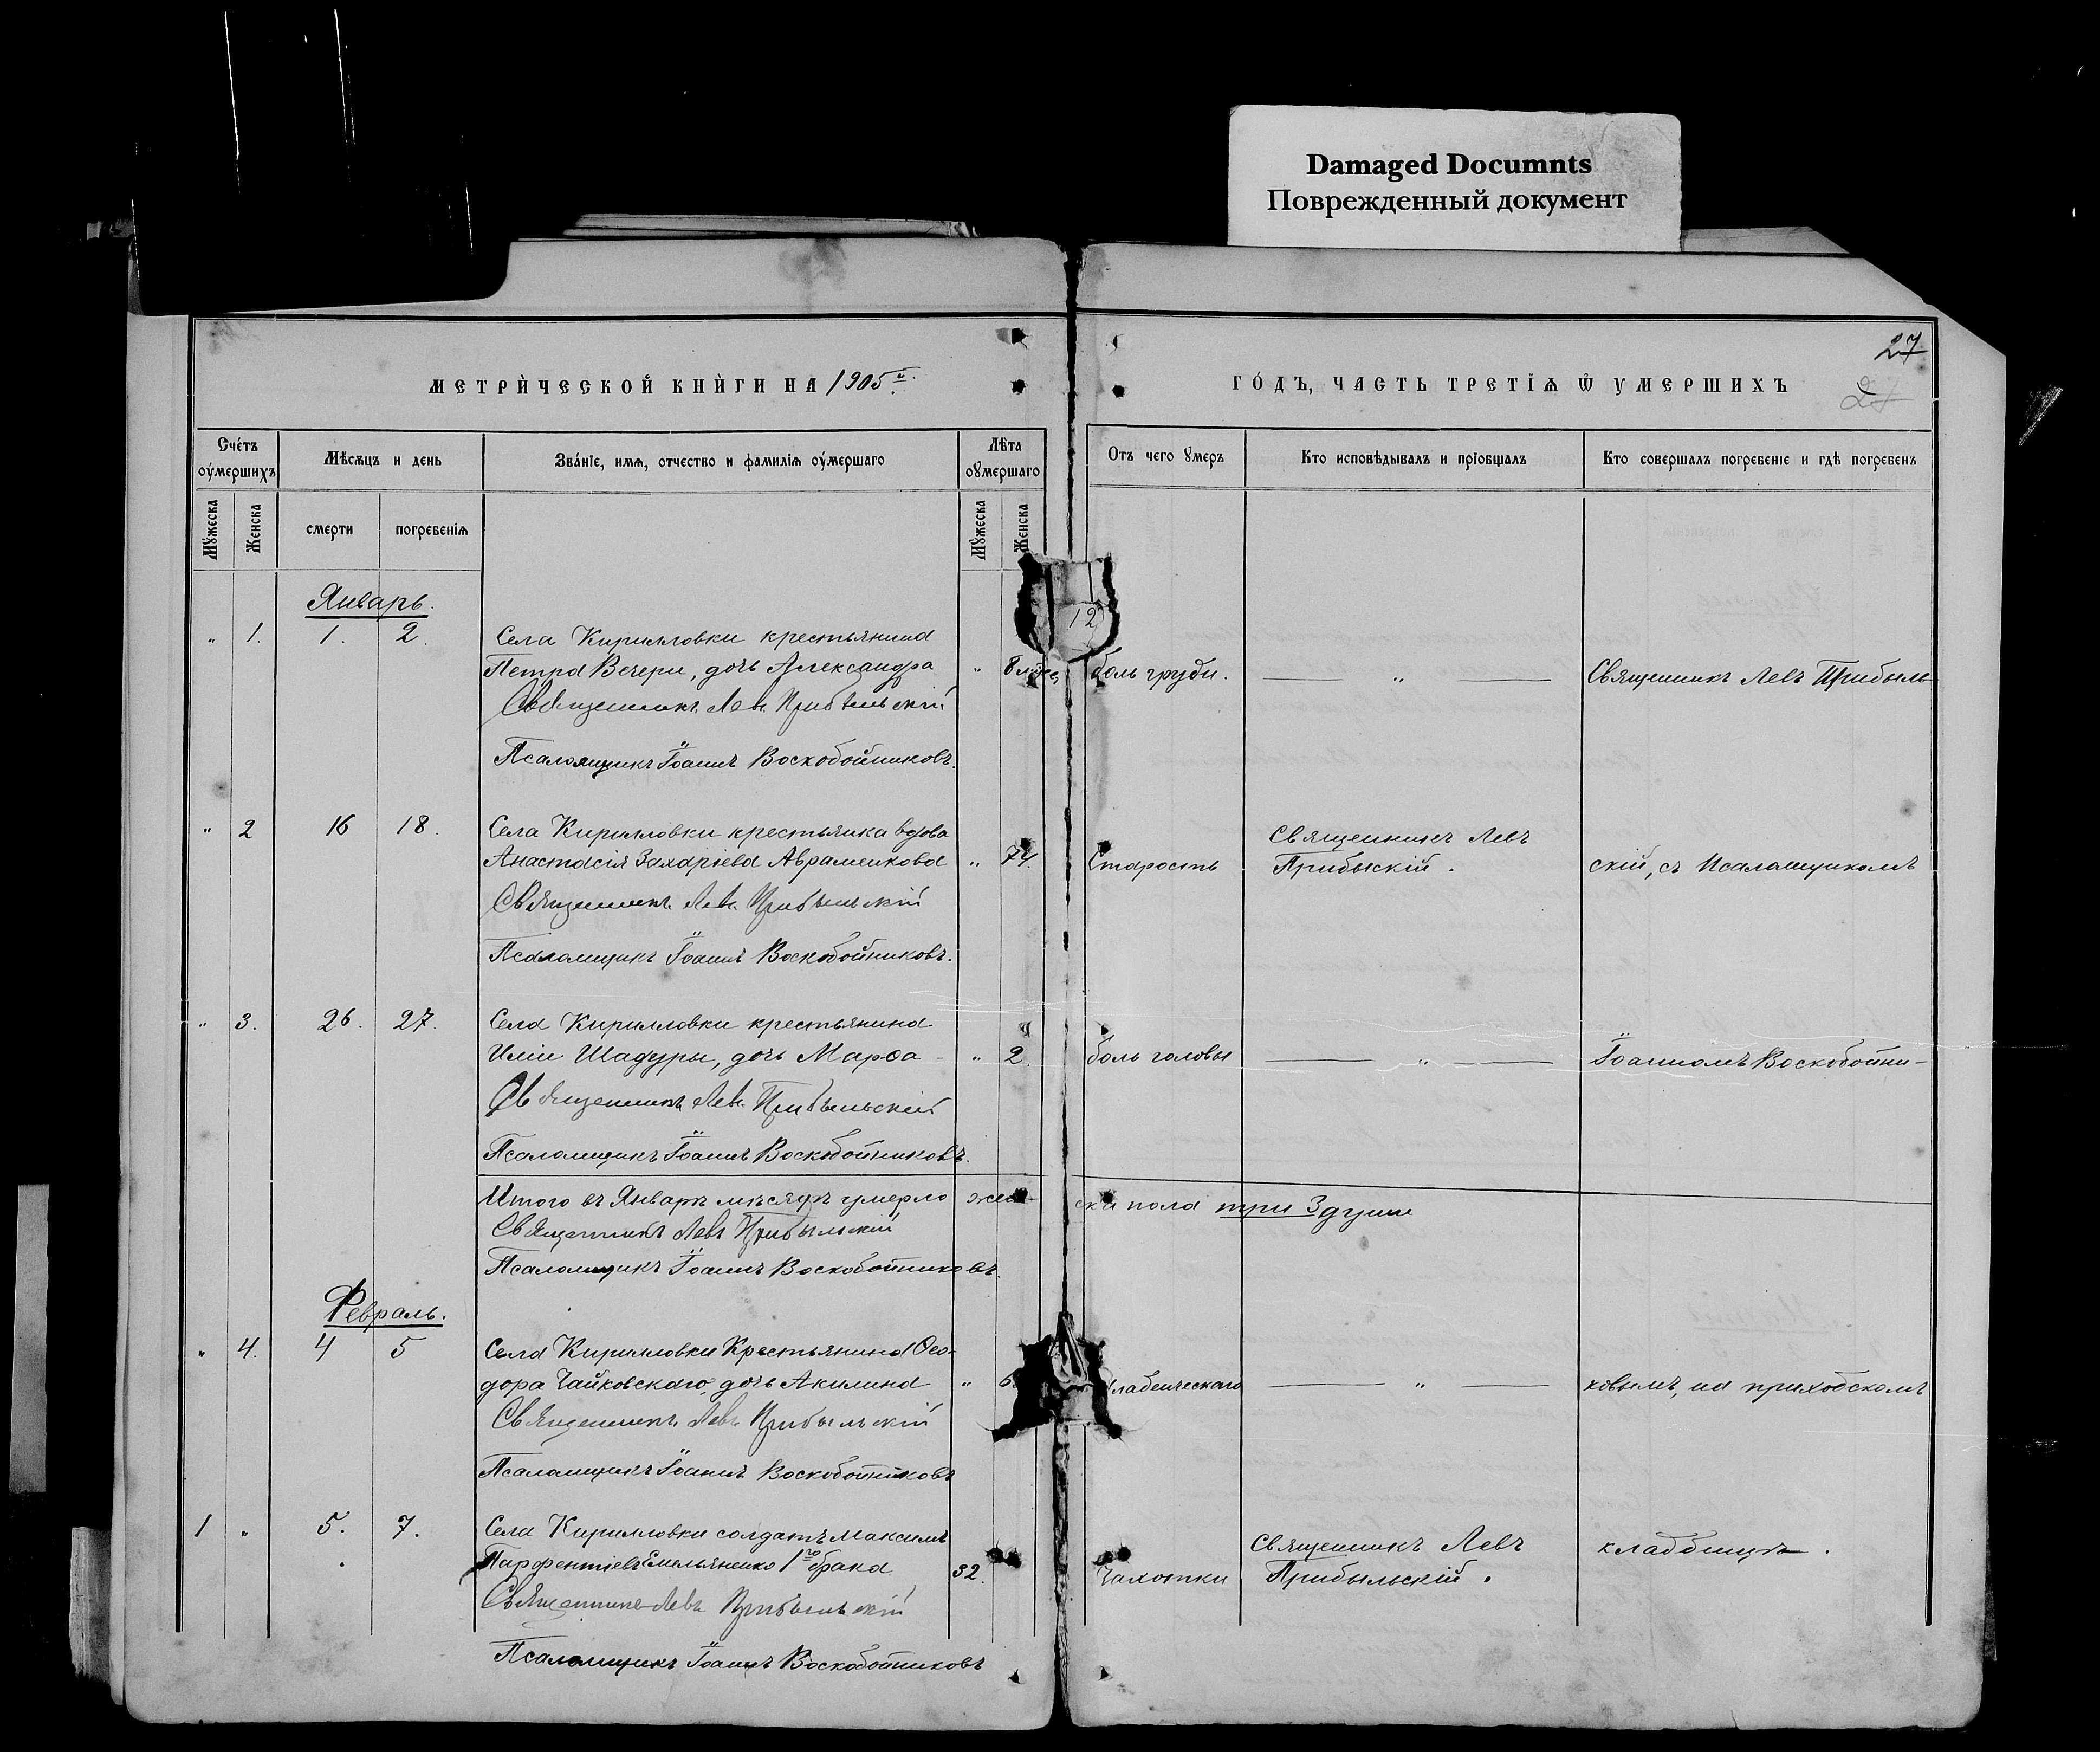 Damaged Documnts
Поврежденный документ
27
27
МЕТРИ́ЧЕСКОЙ КНИ́ГИ НА 1905й.
ГО́ДЪ, ЧАСТЬ ТРЕТІѦ Ѿ УМЕРШИХЪ
Сче́тъ оу́мершихъ
Мѣсѧцъ и день
Зва́нїе, имѧ, отчество и фамилїѧ оу́мершаго
Лѣта оу́мершаго
Отъ чего умеръ
Кто исповѣдывалъ и прїобщалъ
Кто совершалъ погребенїе и гдѣ погребенъ
Мужеска
Женска
смерти
погребенїѧ
Мужеска
Женска
Январь.
12
„ 1. 1. 2. Села Кирилловки крестьянина
Петра Вечери, дочь Александра „ 8 боль груди. — „ — Священникъ Левъ Прибыль
Священникъ Левъ Прибыльскій
Псаломщикъ Іоаннъ Воскобойниковъ.
„ 2 16 18. Села Кирилловки крестьянка вдова
Анастасія Захаріева Авраменкова „ 74. Старость Священникъ Левъ
Прибыскій. скій, съ Псаломщикомъ
Священникъ Левъ Прибыльскій
Псаломщикъ Іоаннъ Воскобойниковъ.
„ 3. 26. 27. Села Кирилловки крестьянина
Иліи Шадуры, дочь Марѳа „ 2 боль головы — „ — Іоанномъ Воскобойни-
Священникъ Левъ Прибыльскій
Псаломщикъ Іоаннъ Воскобойниковъ.
Итого въ Январѣ мѣсяцѣ умерло жен ска пола три 3 души
Священникъ Левъ Прибыльскій
Псаломщикъ Іоаннъ Воскобойниковъ.
Февраль.
„ 4. 4 5 Села Кирилловки Крестьянина Ѳео-
дора Чайковскаго, дочь Акилина „ 6 младенческаго — „ — ковымъ, на приходскомъ
Священникъ Левъ Прибыльскій
Псаломщикъ Іоаннъ Воскобойниковъ
1 „ 5. 7. Села Кирилловки солдатъ Максимъ
Парфентіевъ Емельяненко 1го брака 32. Чахотки Священникъ Левъ
Прибыльскій. кладбищѣ.
Священникъ Левъ Прибыльскій
Псаломщикъ Іоаннъ Воскобойниковъ